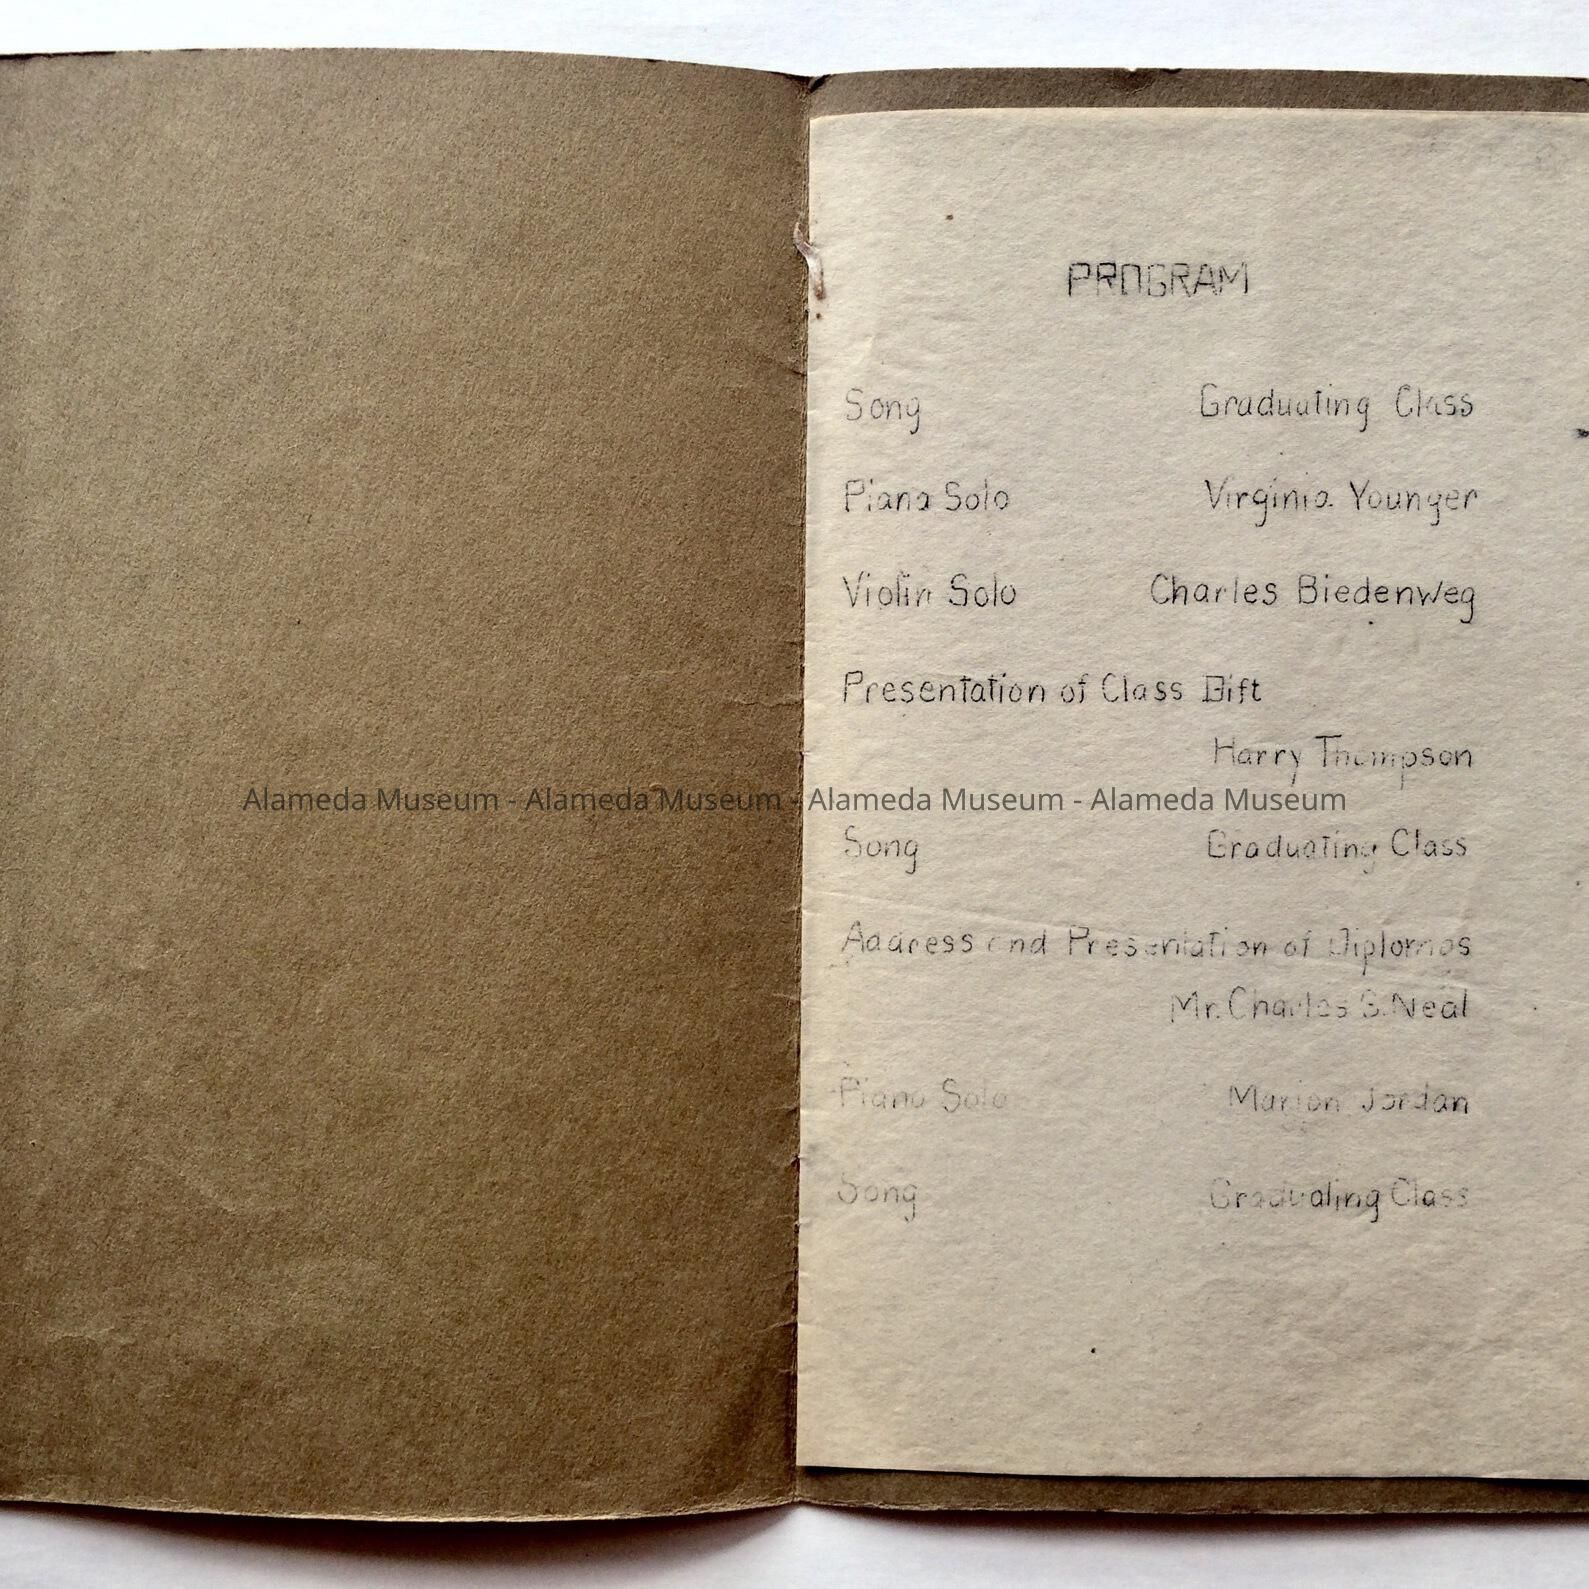 PROGRAM
Song Graduating Class
Piano Solo Virginia Younger
Violin Solo Charles Biedenweg
Presentation of Class Gift
Harry Thompson
Alameda Museum - Alameda Museum - Alameda Museum - Alameda Museum
Song Graduating Class
Address and Presentation of Diplomas
Mr. Charles S. Neal
Piano Solo Marion Jordan
Song Graduating Class